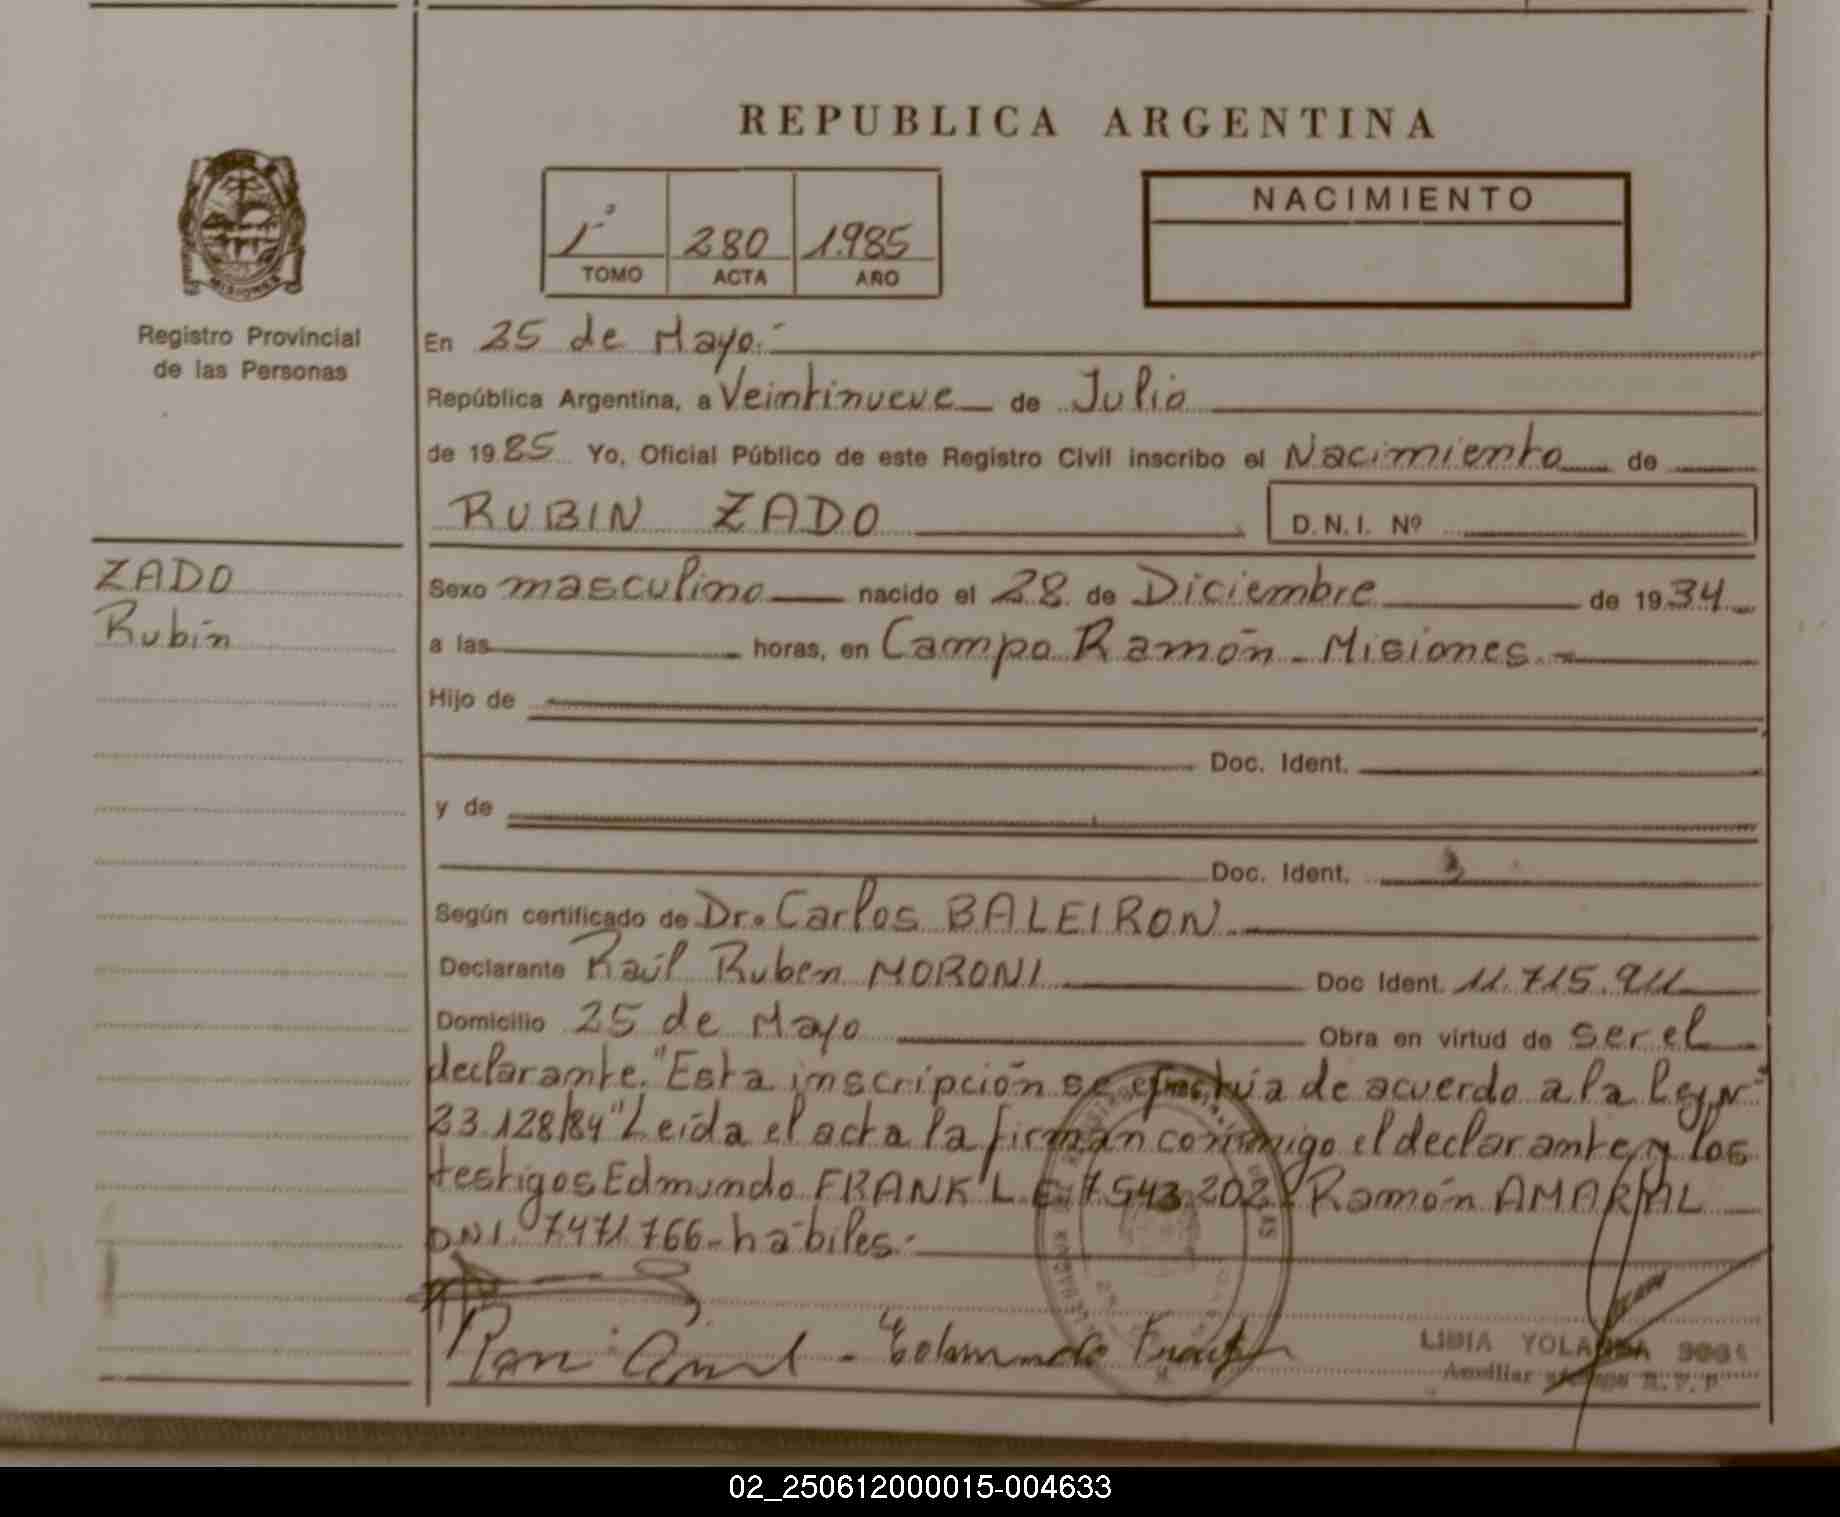 REPUBLICA ARGENTINA
MISIONES
Registro Provincial
de las Personas
1º 280 1.985
TOMO ACTA AÑO
NACIMIENTO
En 25 de Mayo.-
República Argentina, a Veintinueve de Julio
de 1985 Yo, Oficial Público de este Registro Civil inscribo el Nacimiento de
RUBIN ZADO D.N.I. Nº
ZADO
Rubín
Sexo masculino nacido el 28 de Diciembre de 1934
a las horas, en Campo Ramón - Misiones.-
Hijo de
Doc. Ident.
y de
Doc. Ident.
Según certificado de Dr. Carlos BALEIRON
Declarante Raúl Ruben MORONI Doc Ident. 11.715.911
Domicilio 25 de Mayo Obra en virtud de ser el
declarante. "Esta inscripción se efectúa de acuerdo a la Ley Nº
23.128/84" Leída el acta la firman conmigo el declarante y los
testigos Edmundo FRANK L.E. 7.543.202 Ramón AMARAL
DNI. 7471.766- hábiles.-
LIDIA YOLANDA
Auxiliar
02_250612000015-004633